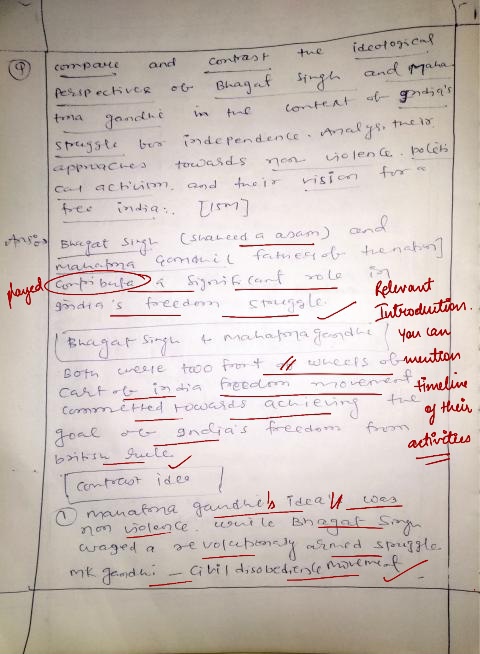 Q
compare and contrast the ideological
perspectives of Bhagat Singh and Maha
tma gandhi in the context of India's
struggle for independence. Analyse their
approaches towards non violence, politi
cal activism, and their vision for a
free india:. [15M]
Bhagat Singh (shaheed a azam) and
mahatma Gandhi( father of the nation]
played
contribute a significant role in
India's freedom struggle.
Relevant
Introduction.
You can
mention
timeline
of their
activities
Bhagat Singh & mahatma gandhi
Both were two front wheels of
cart of india freedom movement
committed towards achieving the
goal of India's freedom from
british rule
Contrast idea
① mahatma gandhi's idea was
non violence. while Bhagat Singh
waged a revolutionary armed struggle.
MK gandhi – Civil disobedience movement